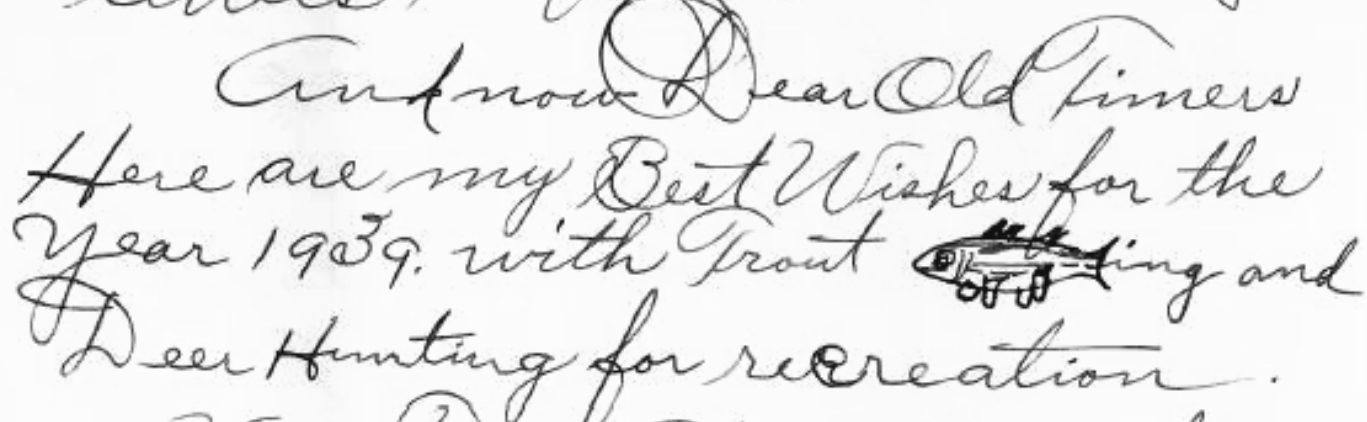 And now Dear Old Timers
Here are my Best Wishes for the
Year 1939. with Trout ing and
Deer Hunting for recreation.